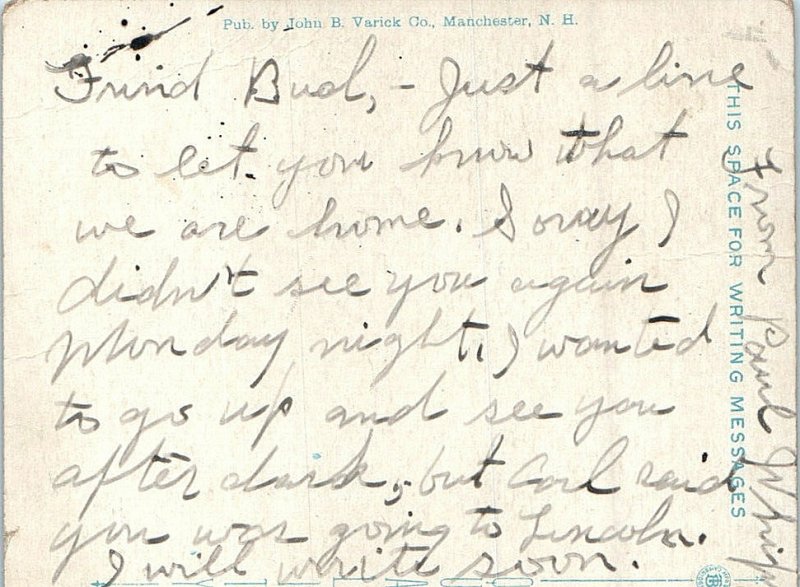 Pub. by John B. Varick Co., Manchester, N. H.
Frind Bud, - Just a line
to let you know that
we are home. Sorry I
didn't see you again
Monday night. I wanted
to go up and see you
after dark, but Carl said
you was going to Lincoln.
I will write soon.
THIS SPACE FOR WRITING MESSAGES
From Paul